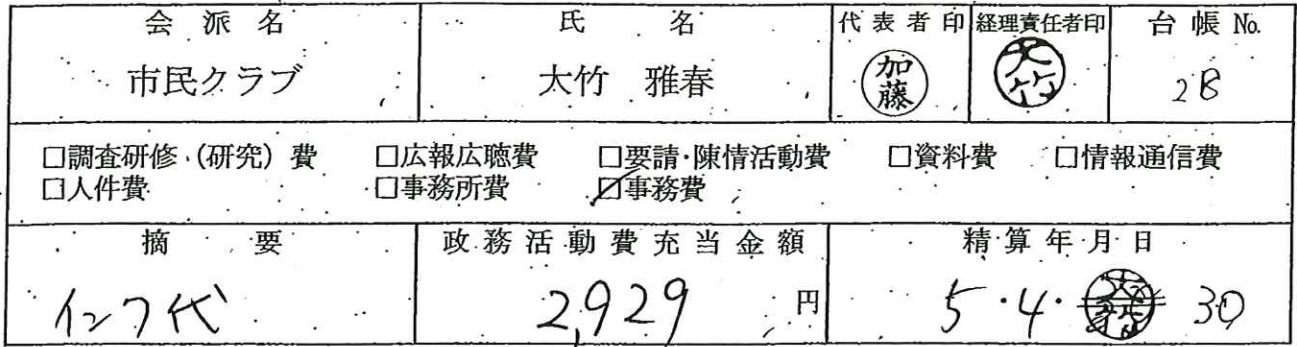 会派名 氏名 代表者印 経理責任者印 台帳No.
市民クラブ 大竹 雅春 加藤 大竹 28
□調査研修(研究)費 □広報広聴費 □要請・陳情活動費 □資料費 □情報通信費
□人件費 □事務所費 ☑事務費
摘要 政務活動費充当金額 精算年月日
インク代 2,929円 5・4・30